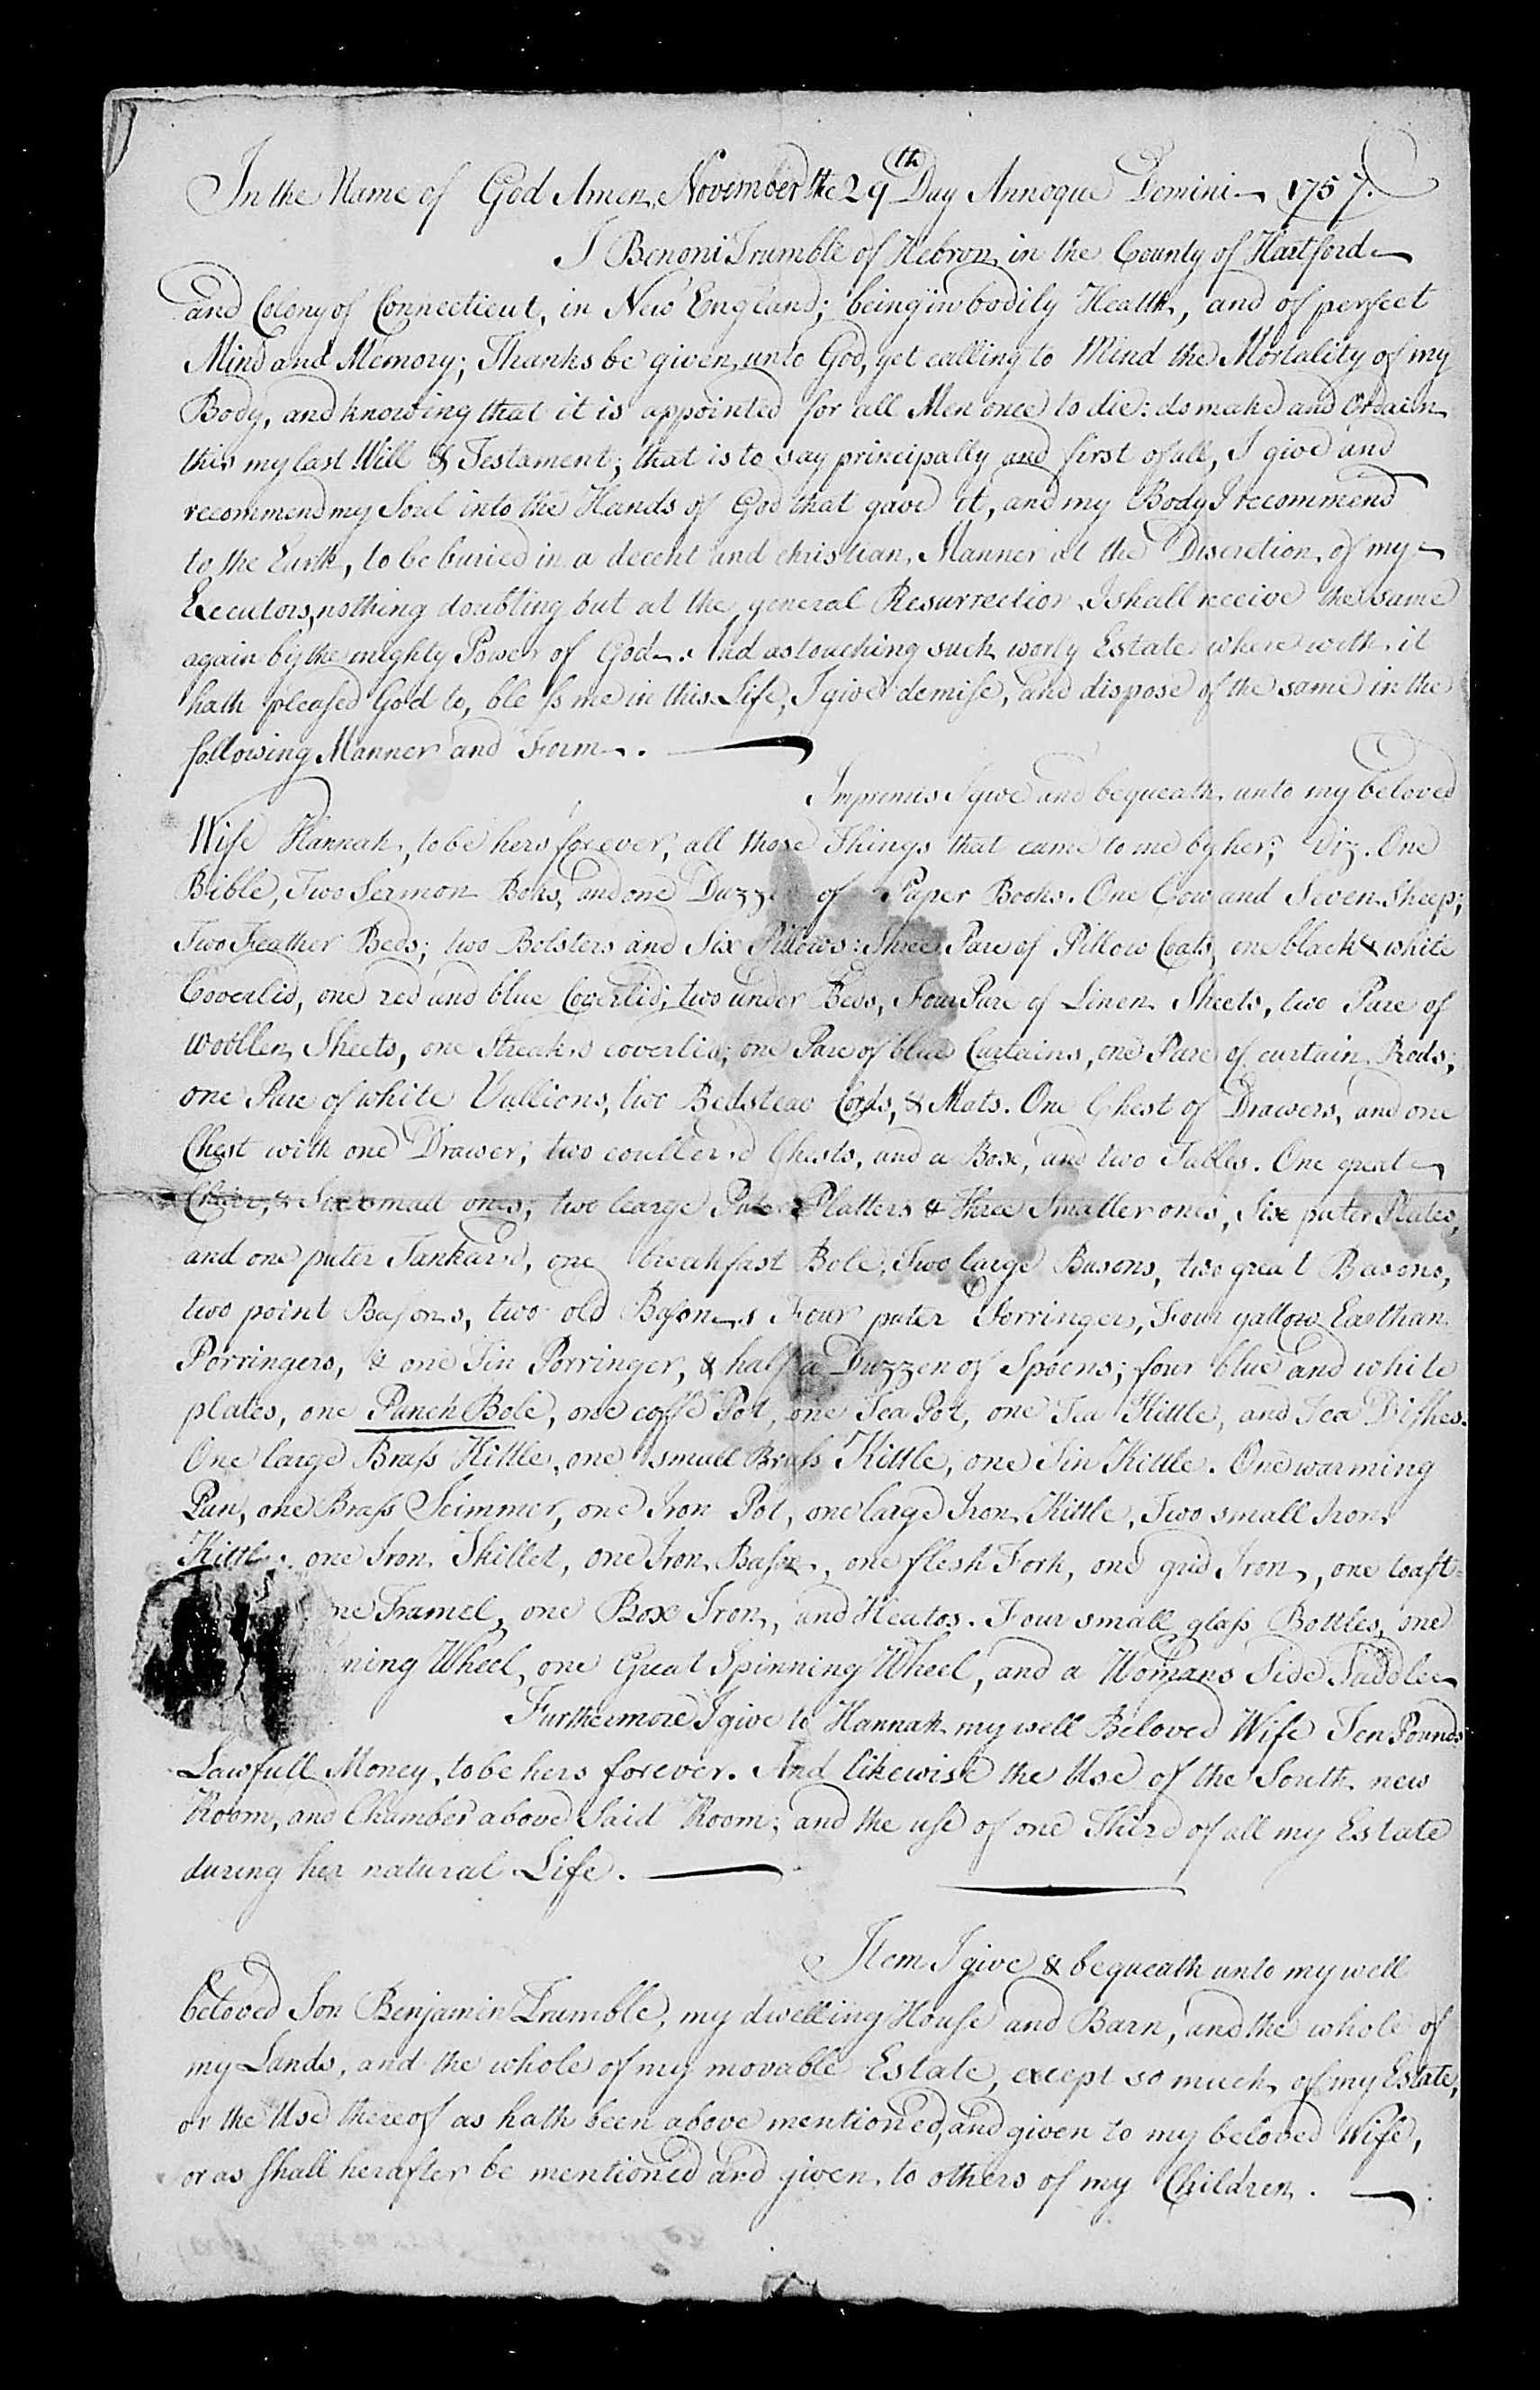 In the Name of God Amen, November the 29th Day Annoque Domini 1757.
I Benoni Trumble of Hebron in the County of Hartford
and Colony of Connecticut, in New England; being in bodily Health, and of perfect
Mind and Memory; Thanks be given unto God, yet calling to Mind the Mortality of my
Body, and knowing that it is appointed for all Men once to die: do make and Ordain
this my last Will & Testament; that is to say principally and first of all, I give and
recommend my Soul into the Hands of God that gave it, and my Body I recommend
to the Earth, to be buried in a decent and christian Manner at the Discretion of my
Executors, nothing doubting but at the general Resurrection I shall receive the same
again by the mighty Power of God. And as touching such worly Estate where with it
hath pleased God to, bless me in this Life, I give demise, and dispose of the same in the
following Manner and Form.
Impremis I give and bequeath unto my beloved
Wife Hannah, to be hers forever, all those Things that came to me by her; Viz. One
Bible, Two Sermon Boks, and one Duzz of Paper Books. One Cow and Seven Sheep;
Two Feather Beds; two Bolsters and Six Pillows: Three Pare of Pillow Coats, one black & white
Coverlid, one red and blue Coverlid; two under Beds, Four Pare of Linen Sheets, two Pare of
Woollen Sheets, one Streaked coverlid; one Pare of blue Curtains, one Pare of curtain Rods;
one Pare of white Vallions, two Bedstead Cords, & Mats. One Chest of Drawers, and one
Chest with one Drawer, two coullered Chests, and a Box, and two Tables. One great
Chair, & Six small ones; two learge Puter Platters & Three Smaller ones, Six puter Plates,
and one puter Tankard, one breakfast Bole, Two large Basons, two great Basons,
two point Basons, two old Basons Four puter Porringers, Four yallow Earthan
Porringers, & one Tin Porringer, & half a Duzzen of Spoens; four blue and white
plates, one Punch Bole, one coffe Pot, one Tea Pot, one Tea Kittle, and Tea Dishes.
One large Brass Kittle, one small Brass Kittle, one Tin Kittle. One warming
Pan, one Brass Scimmer, one Iron Pot, one large Iron Kittle, Two small Iron
Kittles. one Iron Skillet, one Iron Bason, one flesh Fork, one grid Iron, one toast=
ne Tramel, one Box Iron, and Heatos. Four small glass Bottles, one
ning Wheel, one Great Spinning Wheel, and a Womans Side Saddle
Furthermore I give to Hannah my well Beloved Wife Ten Pounds
Lawfull Money, to be hers forever. And likewise the Use of the South new
Room, and Chamber above Said Room; and the use of one Third of all my Estate
during her natural Life.
Item I give & bequeath unto my well
beloved Son Benjamin Trumble, my dwelling House and Barn, and the whole of
my Lands, and the whole of my movable Estate, except so much of my Estate,
or the Use thereof as hath been above mentioned, and given to my beloved Wife,
or as shall herafter be mentioned and given to others of my Children.